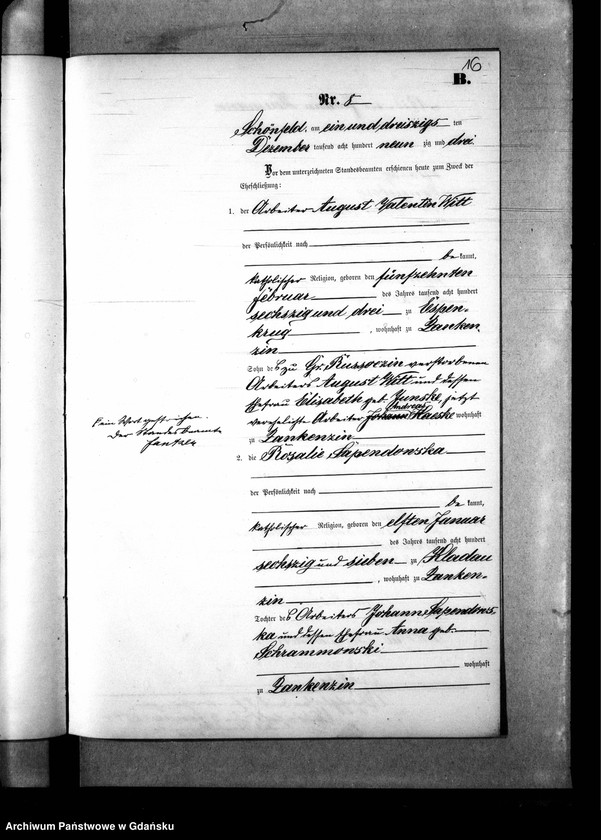 16
B.
Nr. 8
Schönfeld, am ein und dreiszigs ten
Dezember tausend acht hundert neun zig und drei
Vor dem unterzeichneten Standesbeamten erschienen heute zum Zweck der
Eheschließung:
1. der Arbeiter August Valentin Witt
der Persönlichkeit nach
be kannt,
katholischer Religion, geboren den fünfzehnten
Februar des Jahres tausend acht hundert
sechszig und drei zu Espen-
krug, wohnhaft zu Zanken
zin
Sohn des zu Gr. Russoczin verstorbenen
Arbeiters August Witt und dessen
Ehefrau Elisabeth geb. Junske, jetzt
verehelichte Arbeiter Johann Andreas Haiske wohnhaft
zu Zankenzin
2. die Rosalie Sapendowska
der Persönlichkeit nach
be kannt,
katholischer Religion, geboren den elften Januar
des Jahres tausend acht hundert
sechszig und sieben zu Kladau
, wohnhaft zu Zanken-
zin
Tochter des Arbeiters Johann Sapendows
ka und dessen Ehefrau Anna geb.
Schrammowski
wohnhaft
zu Zankenzin
Ein Wort gestrichen.
Der Standesbeamte
Archiwum Państwowe w Gdańsku